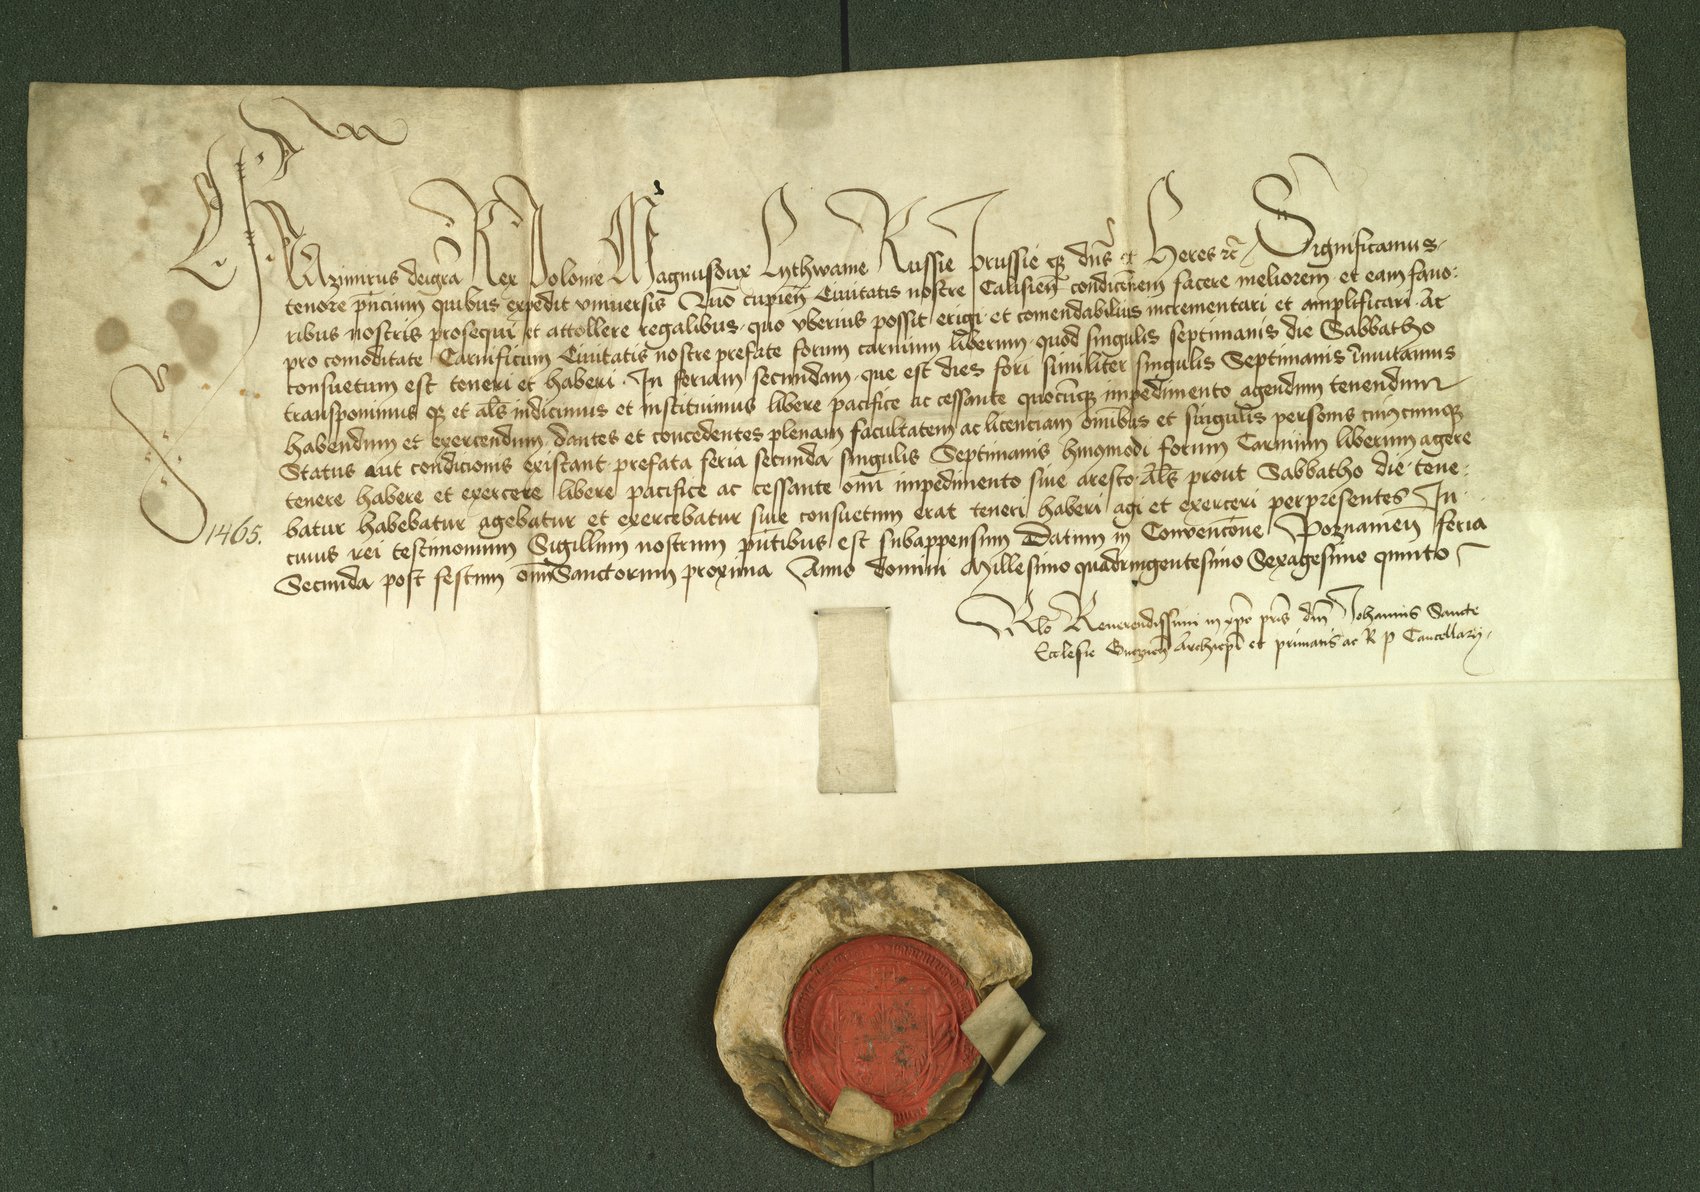 Kazimirus deigra Rex Polonie Magnusdux Lythwanie Russie Prussie qz dns et Heres rc Significamus
tenore pncium quibus expedit vniuersis Quo cupien Ciuitatis nostre Calisien condicionem facere meliorem et eam fauo:
ribus nostris prosequi et attollere regalibus quo vberius possit erigi et comendabilius incrementari et amplificari Ac
pro comoditate Carnificum Ciuitatis nostre prefate forum carnium liberum quod singulis septimanis die Sabbatho
consuetum est teneri et haberi In feriam secundam que est dies fori similiter singulis Septimanis
transponimus qz et als indicimus et instituimus libere pacifice ac cessante quocunqz impedimento agendum tenendum
habendum et exercendum dantes et concedentes plenam facultatem ac licenciam omibus et singulis personis cuiuscunqz
Status aut condicionis existant prefata feria secunda singulis Septimanis hmomodi forum Carnium liberum agere
tenere habere et exercere libere pacifice ac cessante omi impedimento siue aresto Als prout Sabbatho die tene:
batur habebatur agebatur et exercebatur siue consuetum erat teneri haberi agi et exerceri perpresentes In
1465.
cuius rei testimonium Sigillum nostrum pntibus est subappensum Datum in Convencone Poznanien feria
Secunda post festum omiSanctorum proxima Anno domini Millesimo quadringentesimo Sexagesimo quinto
Rlo Reuerendissimi in xpo pris dni Johannis Sancte
Ecclesie Gneznen Archiepi et primatis ac R p Cancellarij